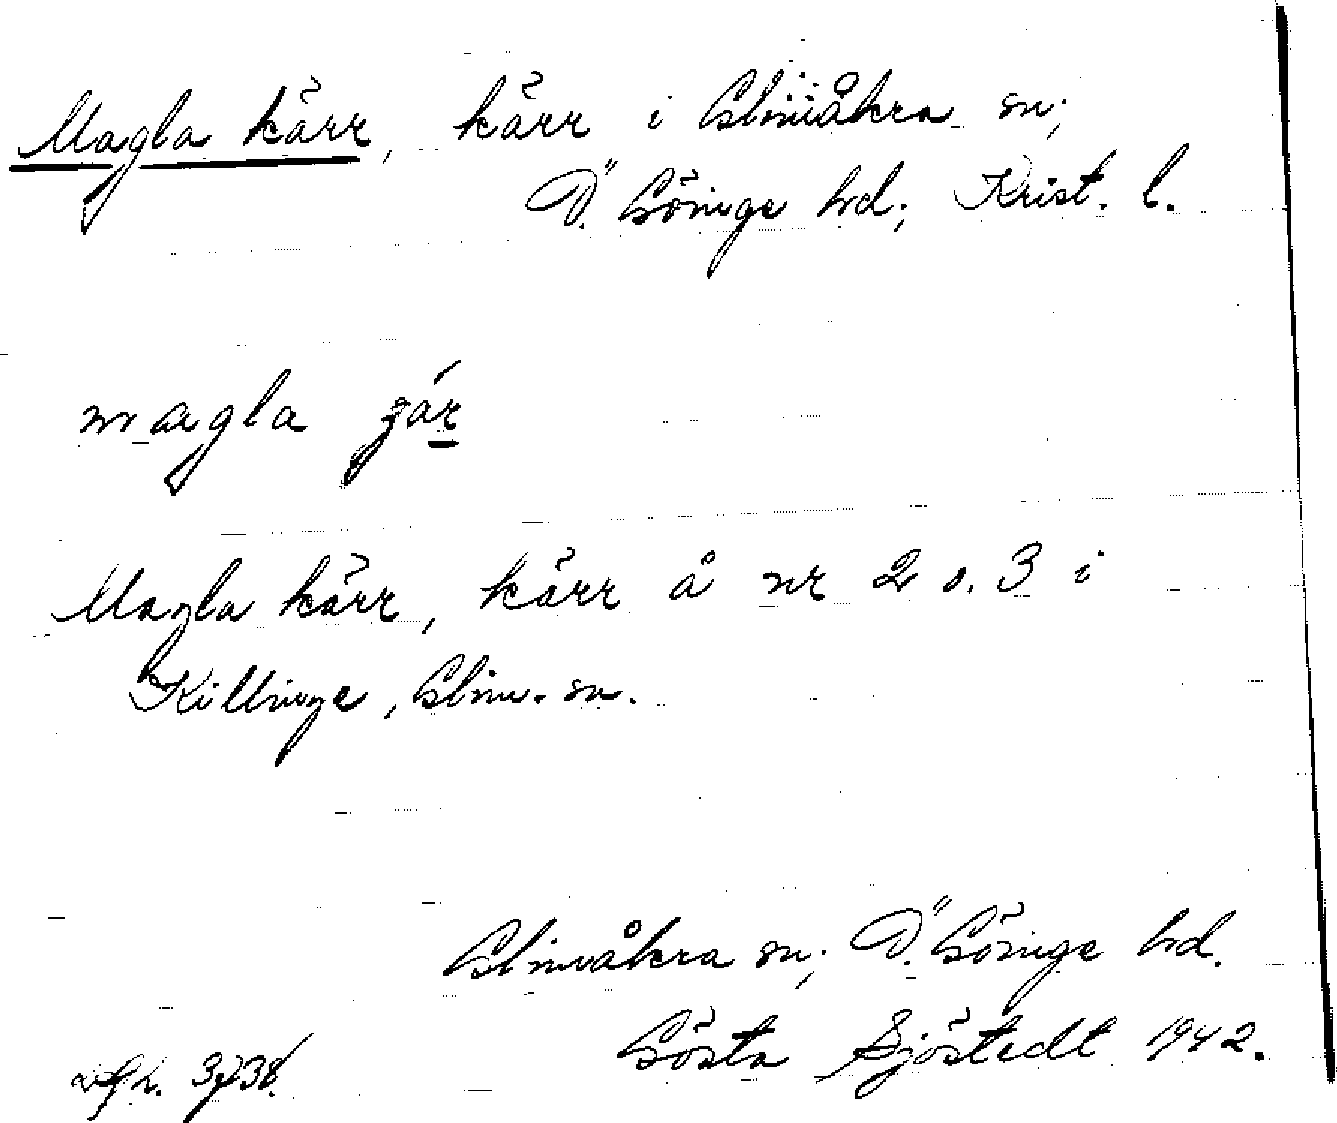 Magla kärr, kärr i Glimåkra sn;
Ö. Göinge hd; Krist. l.
magla
Magla kärr, kärr å nr 2 o. 3 i
Killinge, Glim. sn.
Glimåkra sn; Ö. Göinge hd.
Gösta Sjöstedt 1942.